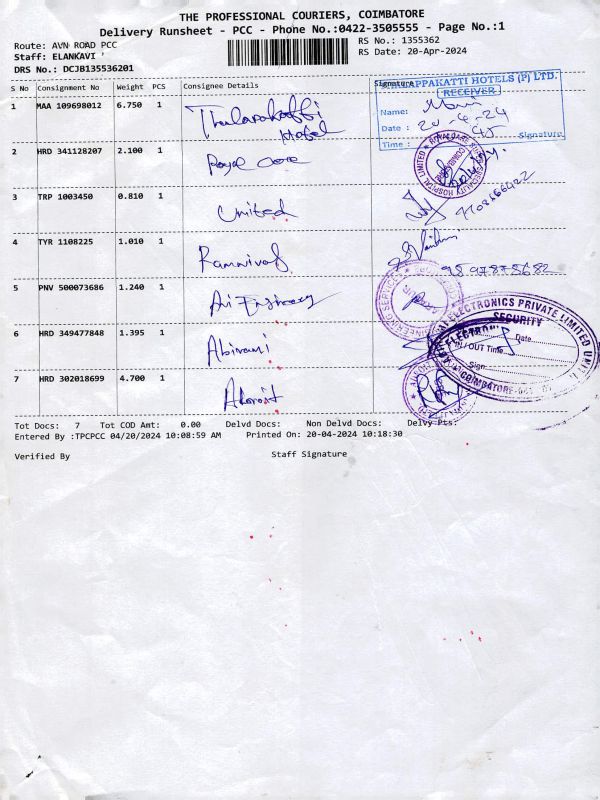 THE PROFESSIONAL COURIERS, COIMBATORE
Delivery Runsheet - PCC - Phone No.:0422-3505555 - Page No.:1
Route: AVN ROAD PCC
RS No.: 1355362
Staff: ELANKAVI
RS Date: 20-Apr-2024
DRS No.: DCJB135536201
S No Consignment No Weight PCS Consignee Details Signature
1 MAA 109698012 6.750 1
Hotel
2 HRD 341128207 2.100 1 Royal care
3 TRP 1003450 0.810 1 United
4 TYR 1108225 1.010 1
5 PNV 500073686 1.240 1
6 HRD 349477848 1.395 1 Abirami
7 HRD 302018699 4.700 1
APPAKATTI HOTELS (P) LTD.
RECEIVER
Name:
Date : 20-4-24
Time :
Signature
HOSPITAL LIMITED
ELECTRONICS PRIVATE LIMITED
SECURITY
IN / OUT Time
Date
Sign
COIMBATORE
Tot Docs: 7 Tot COD Amt: 0.00 Delvd Docs: Non Delvd Docs: Delvy Pts:
Entered By :TPCPCC 04/20/2024 10:08:59 AM Printed On: 20-04-2024 10:18:30
Verified By Staff Signature